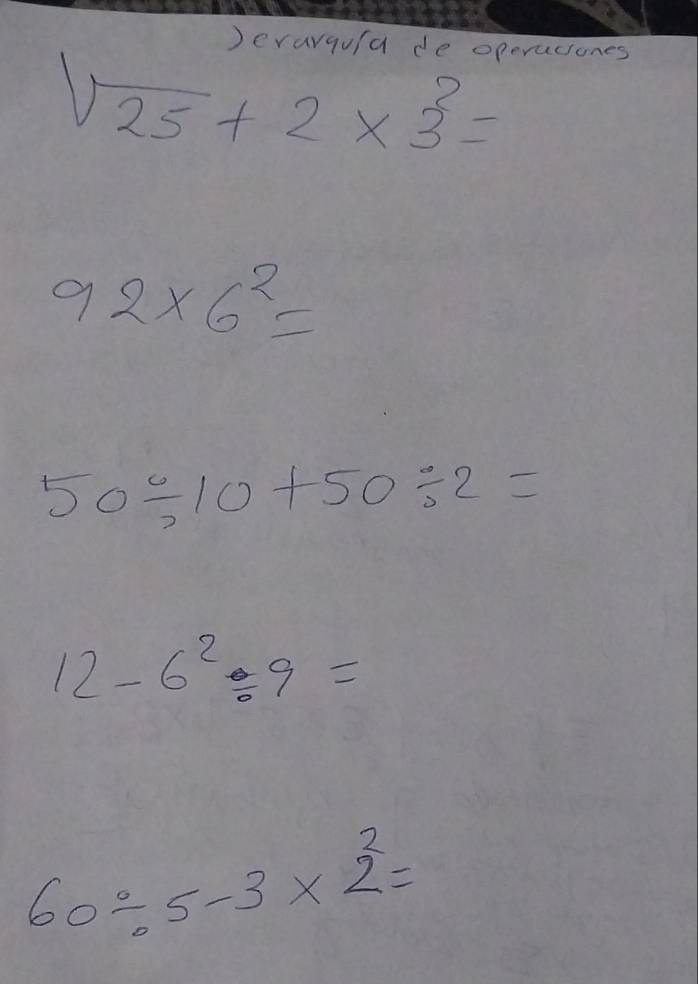 Jerarquía de operaciones
√25 + 2 × 3² =
92 × 6² =
50 ÷ 10 + 50 ÷ 2 =
12 - 6² ÷ 9 =
60 ÷ 5 - 3 × 2² =